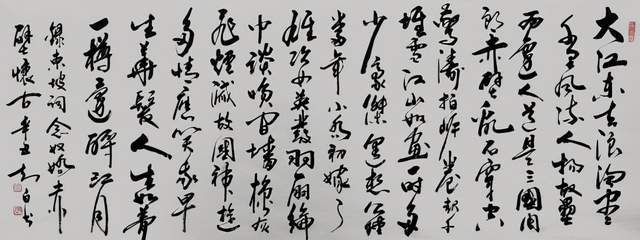 大江東去浪淘盡
千古風流人物故壘
西邊人道是三國周
郎赤壁亂石穿空
驚濤拍岸卷起千
堆雪江山如畫一時多
少豪傑遙想公瑾
當年小喬初嫁了
雄姿英發羽扇綸
巾談笑間檣櫓灰
飛煙滅故國神遊
多情應笑我早
生華髮人生如夢
一樽還酹江月
錄東坡詞念奴嬌赤
壁懷古辛丑白書